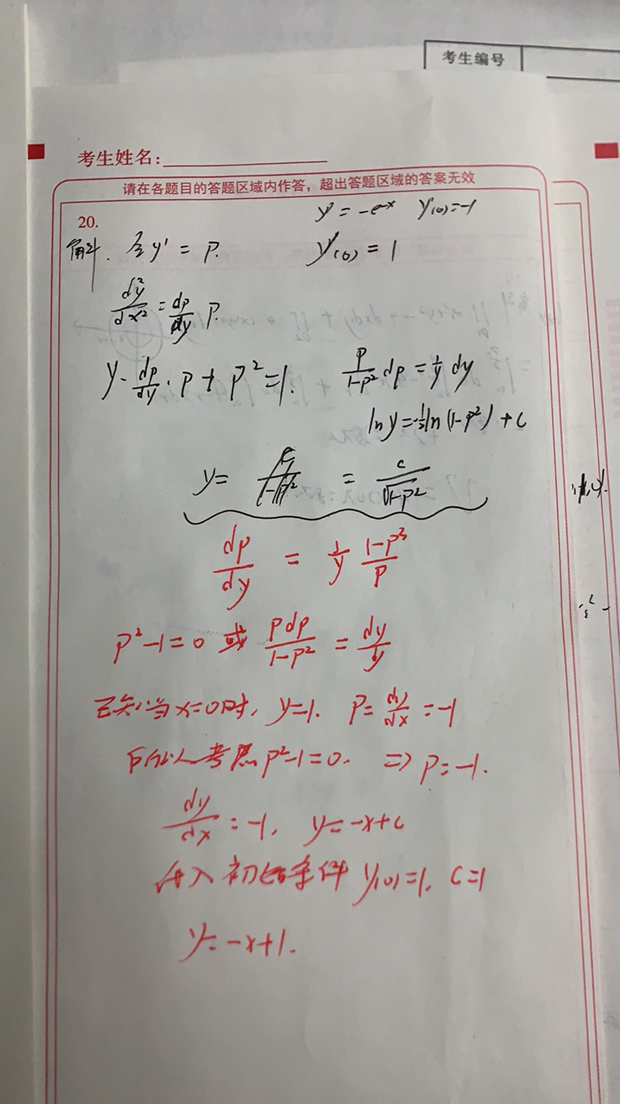 考生编号
考生姓名：
请在各题目的答题区域内作答，超出答题区域的答案无效
20.
y' = -e^-x y'(0)=-1
解. 令y' = P. y'(0) = 1
d²y/dx² = dp/dy P.
y·dp/dy·P + P²=1. P/(1-P²) dp = 1/y dy
lny=-½ln(1-P²)+C
y= = C/√(1-P²)
dp/dy = 1/y (1-P²)/P
P²-1=0 或 PdP/(1-P²) = dy/y
已知当x=0时, y=1. P= dy/dx =-1
所以考虑P²-1=0. ⇒ P=-1.
dy/dx =-1, y=-x+C
代入初始条件 y(0)=1, C=1
y=-x+1.